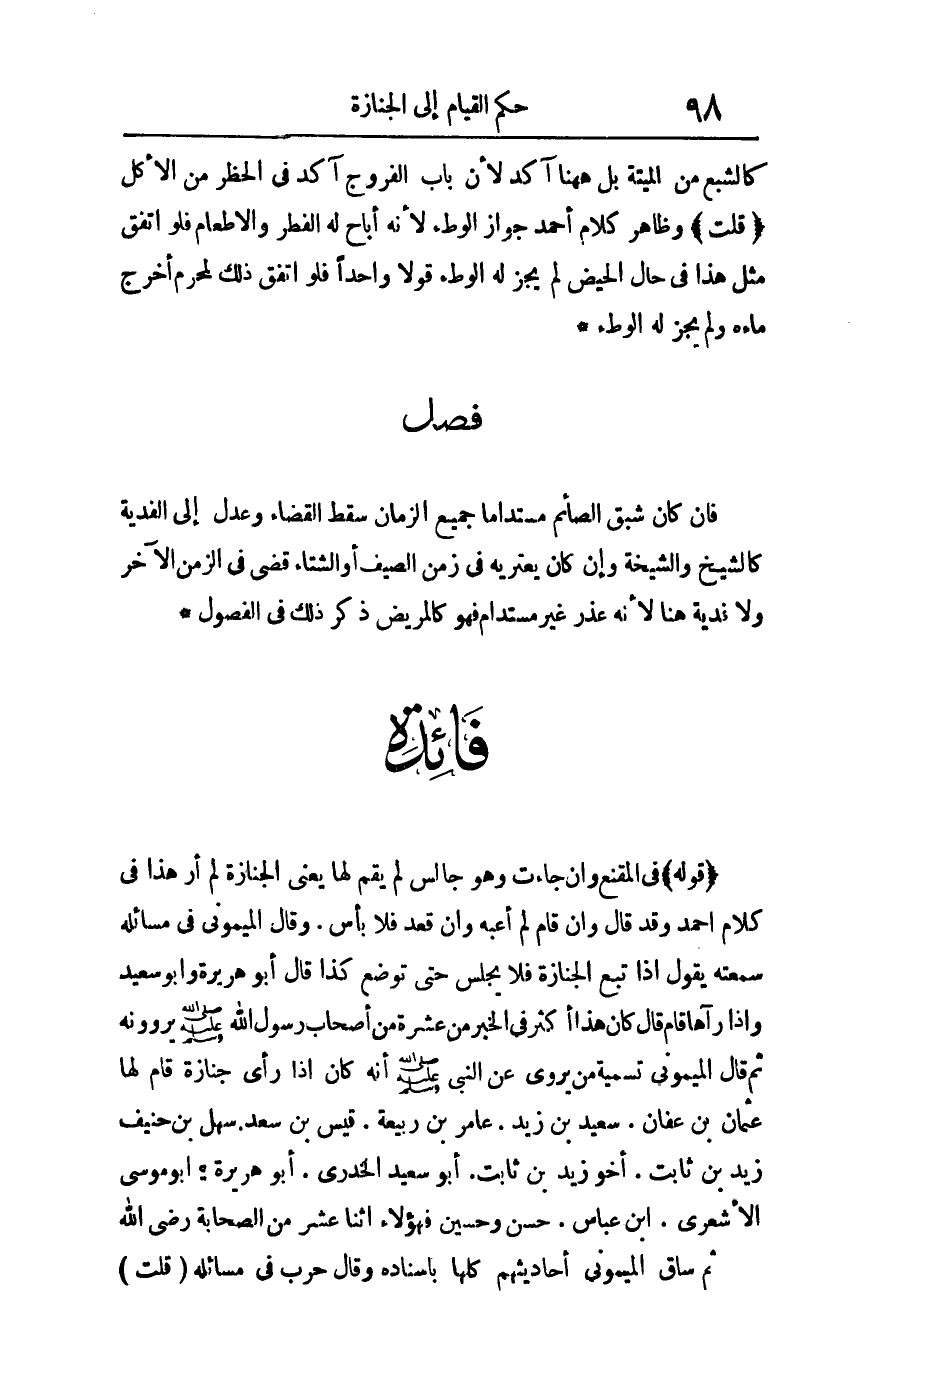 ٩٨ حكم القيام إلى الجنازة
كالشبع من الميتة بل ههنا آكد لأن باب الفروج آكد فى الحظر من الأكل
﴿ قلت ﴾ وظاهر كلام أحمد جواز الوطء لأنه أباح له الفطر والاطعام فلو اتفق
مثل هذا فى حال الحيض لم يجز له الوطء قولا واحداً فلو اتفق ذلك لمحرم أخرج
ماءه ولم يجز له الوطء *
فصل
فان كان شبق الصائم مستداما جميع الزمان سقط القضاء وعدل إلى الفدية
كالشيخ والشيخة وإن كان يعتريه فى زمن الصيف أو الشتاء قضى فى الزمن الآخر
ولا فدية هنا لأنه عذر غير مستدام فهو كالمريض ذكر ذلك فى الفصول *
فَائِدَة
﴿قوله﴾ فى المقنع وان جاءت وهو جالس لم يقم لها يعنى الجنازة لم أر هذا فى
كلام احمد وقد قال وان قام لم أعبه وان قعد فلا بأس . وقال الميمونى فى مسائله
سمعته يقول اذا تبع الجنازة فلا يجلس حتى توضع كذا قال أبو هريرة وابو سعيد
واذا رآها قام قال كان هذا أكثر فى الخبر من عشرة من أصحاب رسول الله ﷺ يروونه
ثم قال الميمونى تسمية من يروى عن النبى ﷺ أنه كان اذا رأى جنازة قام لها
عثمان بن عفان . سعيد بن زيد . عامر بن ربيعة . قيس بن سعد. سهل بن حنيف
زيد بن ثابت . أخو زيد بن ثابت. أبو سعيد الخدرى . أبو هريرة ؛ ابو موسى
الأشعرى . ابن عباس . حسن وحسين فهؤلاء اثنا عشر من الصحابة رضى الله
ثم ساق الميمونى أحاديثهم كلها باسناده وقال حرب فى مسائله ( قلت )